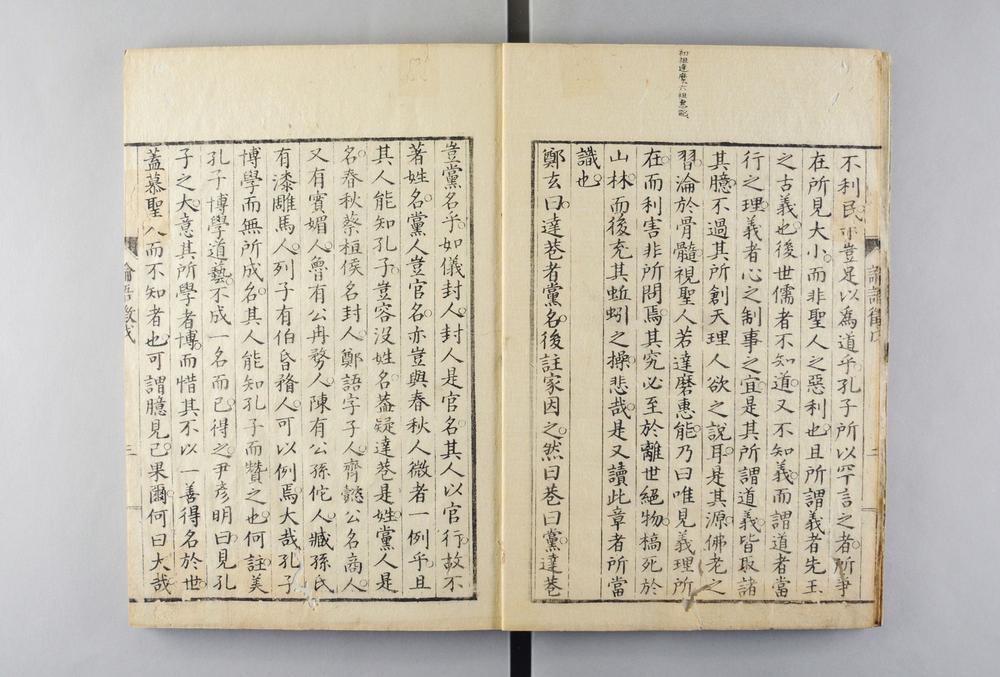 初祖達磨六祖惠能
不利民亦豈足以為道乎孔子所以罕言之者所爭
在所見大小而非聖人之惡利也且所謂義者先王
之古義也後世儒者不知道又不知義而謂道者當
行之理義者心之制事之宜是其所謂道義皆取諸
其臆不過其所創天理人欲之說耳是其源佛老之
習淪於骨髓視聖人若達磨惠能乃曰唯見義理所
在而利害非所問焉其究必至於離世絕物槁死於
山林而後充其蚯蚓之操悲哉是又讀此章者所當
識也
鄭玄曰達巷者黨名後註家因之然曰巷曰黨達巷
二
豈黨名乎如儀封人封人是官名其人以官行故不
著姓名黨人豈官名亦豈與春秋人微者一例乎且
其人能知孔子豈容沒姓名葢疑達巷是姓黨人是
名春秋蔡桓侯名封人鄭語字子人齊懿公名商人
又有賓媚人魯有公冉務人陳有公孫佗人臧孫氏
有漆雕馬人列子有伯昏瞀人可以例焉大哉孔子
博學而無所成名其人能知孔子而贊之也何註美
孔子博學道藝不成一名而已得之尹彥明曰見孔
子之大意其所學者博而惜其不以一善得名於世
蓋慕聖人而不知者也可謂臆見已果爾何曰大哉
論語徵戊
三